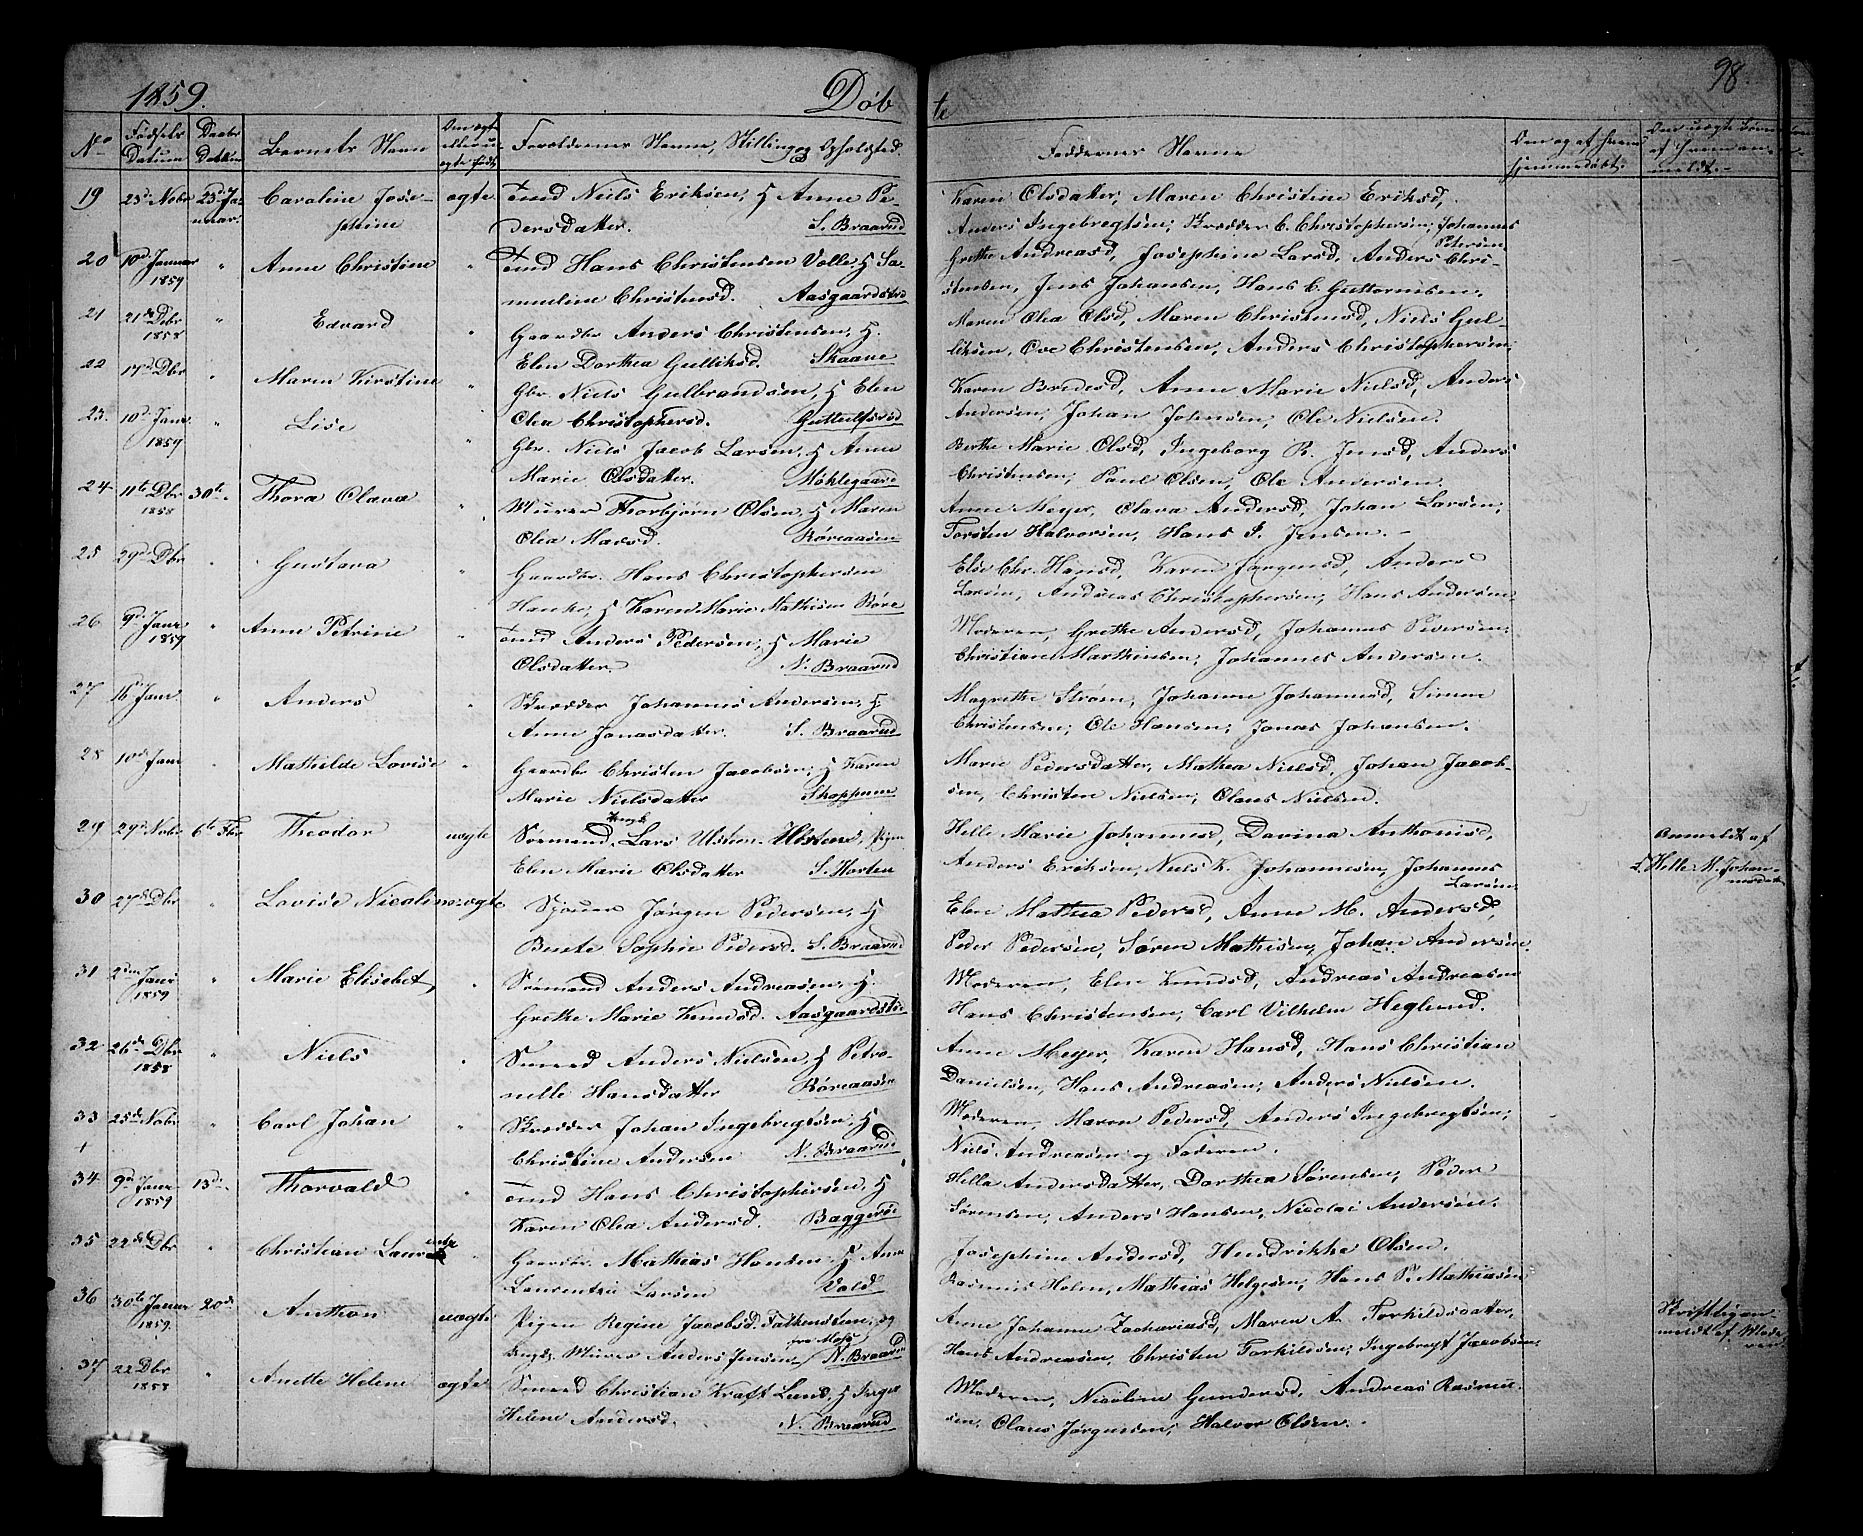 1859. Døbte 98.
No Fødsels Datum Daabs Datum Barnets Navn Om ægte eller uægte født Forældrenes Navne, Stilling og Opholdsted Faddernes Navne
19 23de Nobr 23de Januar Caroline Josephine ægte Tømd Niels Eriksen, H Anne Pedersdatter. S. Braarud
Karen Olsdatter, Maren Christine Eriksd,
Anders Ingebregtsen; Skrædder C. Christophersen; Johannes Petersen
20 10de Januar 1859 " Anne Christine " Tømd Hans Christensen Volle, H Samueline Christensd. Aasgaardstrd
Grethe Andreasd, Josephine Larsd, Anders Christensen, Jens Johansen, Hans C. Guttormsen.
21 21de Dbr 1858 " Edvard " Gaardbr Anders Christensen, H. Elen Dorthea Gulliksd. Skaane
Maren Olea Olsd, Maren Christensd, Niels Gulliksen, Ove Christensen, Anders Christophersen;
22 17de Dbr " Maren Kirstine " Gbr. Niels Gulbrandsen, H Elen Olea Christophersd.
Karen Bredesd, Anne Marie Nielsd, Anders Andersen; Johan Johnsen, Ole Nielsen.
23. 10de Janr 1859 " Lise " Gbr. Niels Jacob Larsen, H Anne Marie Olsdatter. Møhlegaard
Berthe Marie Olsd, Ingeborg R. Jensd, Anders Christensen; Paul Olsen, Ole Andersen.
24 11te Dbr 1858 30te Thora Olava " Murer Thorbjørn Olsen, H Maren Olea Madsd. Røreaasen
Anne Meyer, Olava Andersd, Johan Larsen, Torsten Halvorsen, Hans J. Jensen. -
25 29de Dbr " Gustava " Gaardbr. Hans Christophersen Hanke, H Karen Marie Mathisen Røre
Else Chr. Hansd, Karen Jørgensd, Anders Larsen, Andreas Christophersen; Hans Andersen
26 9de Janr 1859 " Anne Petrine " Tømd Anders Pedersen, H Marie Olsdatter N. Braarud
Moderen, Grethe Andersd, Johannes Pedersen; Christian Marthinsen; Johannes Andersen.
27 16 Janr " Anders " Skrædder Johannes Andersen, H. Anne Jonasdatter. S. Braarud
Magrethe Strøm, Johanne Johannesd, Simen Christensen; Ole Hansen; Jonas Johansen.
28 10de Janr " Mathilde Lovise " Gaardbr Christen Jacobsen, H Karen Marie Nielsdatter Skoppum
Marie Pedersdatter, Mathea Nielsd, Johan Jacobsen, Christen Nielsen, Olaus Nielsen.
29 29de Nobr 6te Fbr Theodor uægte Sømand Lars Ulsten, Pigen Elen Marie Olsdatter S. Horten
Helle Marie Johannesd, Davina Anthonisd, Anders Eriksen, Niels K. Johannesen, Johannes Larsen
Anmeldt af Helle M. Johannesdatter
30 27de Dbr " Lovise Nicoline ægte Sjouer Jørgen Pedersen, H Bente Sophie Pedersd. S. Braarud
Elen Mathea Pedersd, Anne M. Andersd, Peder Pedersen, Søren Mathisen, Johan Andersen.
31 2den Janr 1859 " Marie Elisebet " Sømand Anders Andreasen, H. Grethe Marie Knudsd. Aasgaardstr
Moderen, Elen Knudsd, Andreas Andreasen Hans Christensen; Carl Vilhelm Heglund.
32 26de Dbr 1858 " Niels " Smed Anders Nielsen, H Petronelle Hansdatter Røreaasen
Anne Meyer, Karen Hansd, Hans Christian Danielsen, Hans Andreasen, Anders Nielsen.
33 + 25de Nobr " Carl Johan " Skrædder Johan Ingebregtsen, H Christine Andersen N. Braarud
Moderen, Maren Pedersd, Anders Ingebregtsen; Niels Andreasen og Faderen.
34 9de Janr 1859 13de Thorvald " Tømd Hans Christophersen, H Karen Olea Andersd.
Hella Andersdatter, Dorthea Sørensen, Peder Sørensen, Anders Hansen, Nicolai Andersen.
35 22de Dbr " Christian " Gaardbr. Mathias Hansen, H Anne Laurentzia Larsen Vold
Josephine Andersd, Hendrikke Olsen. Rasmus Holm, Mathias Helgesen, Hans P. Mathiasen
36 30te Januar 1859. 20de Anthon uægte Pigen Regine Jacobsd. Falkensten, og Ungk. Murer Anders Jensen, fra Moss N. Braarud
Anne Johanne Zachariasd, Maren A. Torkildsdatter, Hans Andreasen, Christen Torkildsen, Ingebregt Jacobsen
Skriftlig anmeldt af Moderen
37 22 Dbr 1858 " Anette Helene ægte Smed Christian Kraft Lund, H Inger Helene Andersd. N. Braarud
Moderen, Nicoline Gundersd, Andreas Rasmussen, Olaves Jørgensen, Halvor Olsen. -